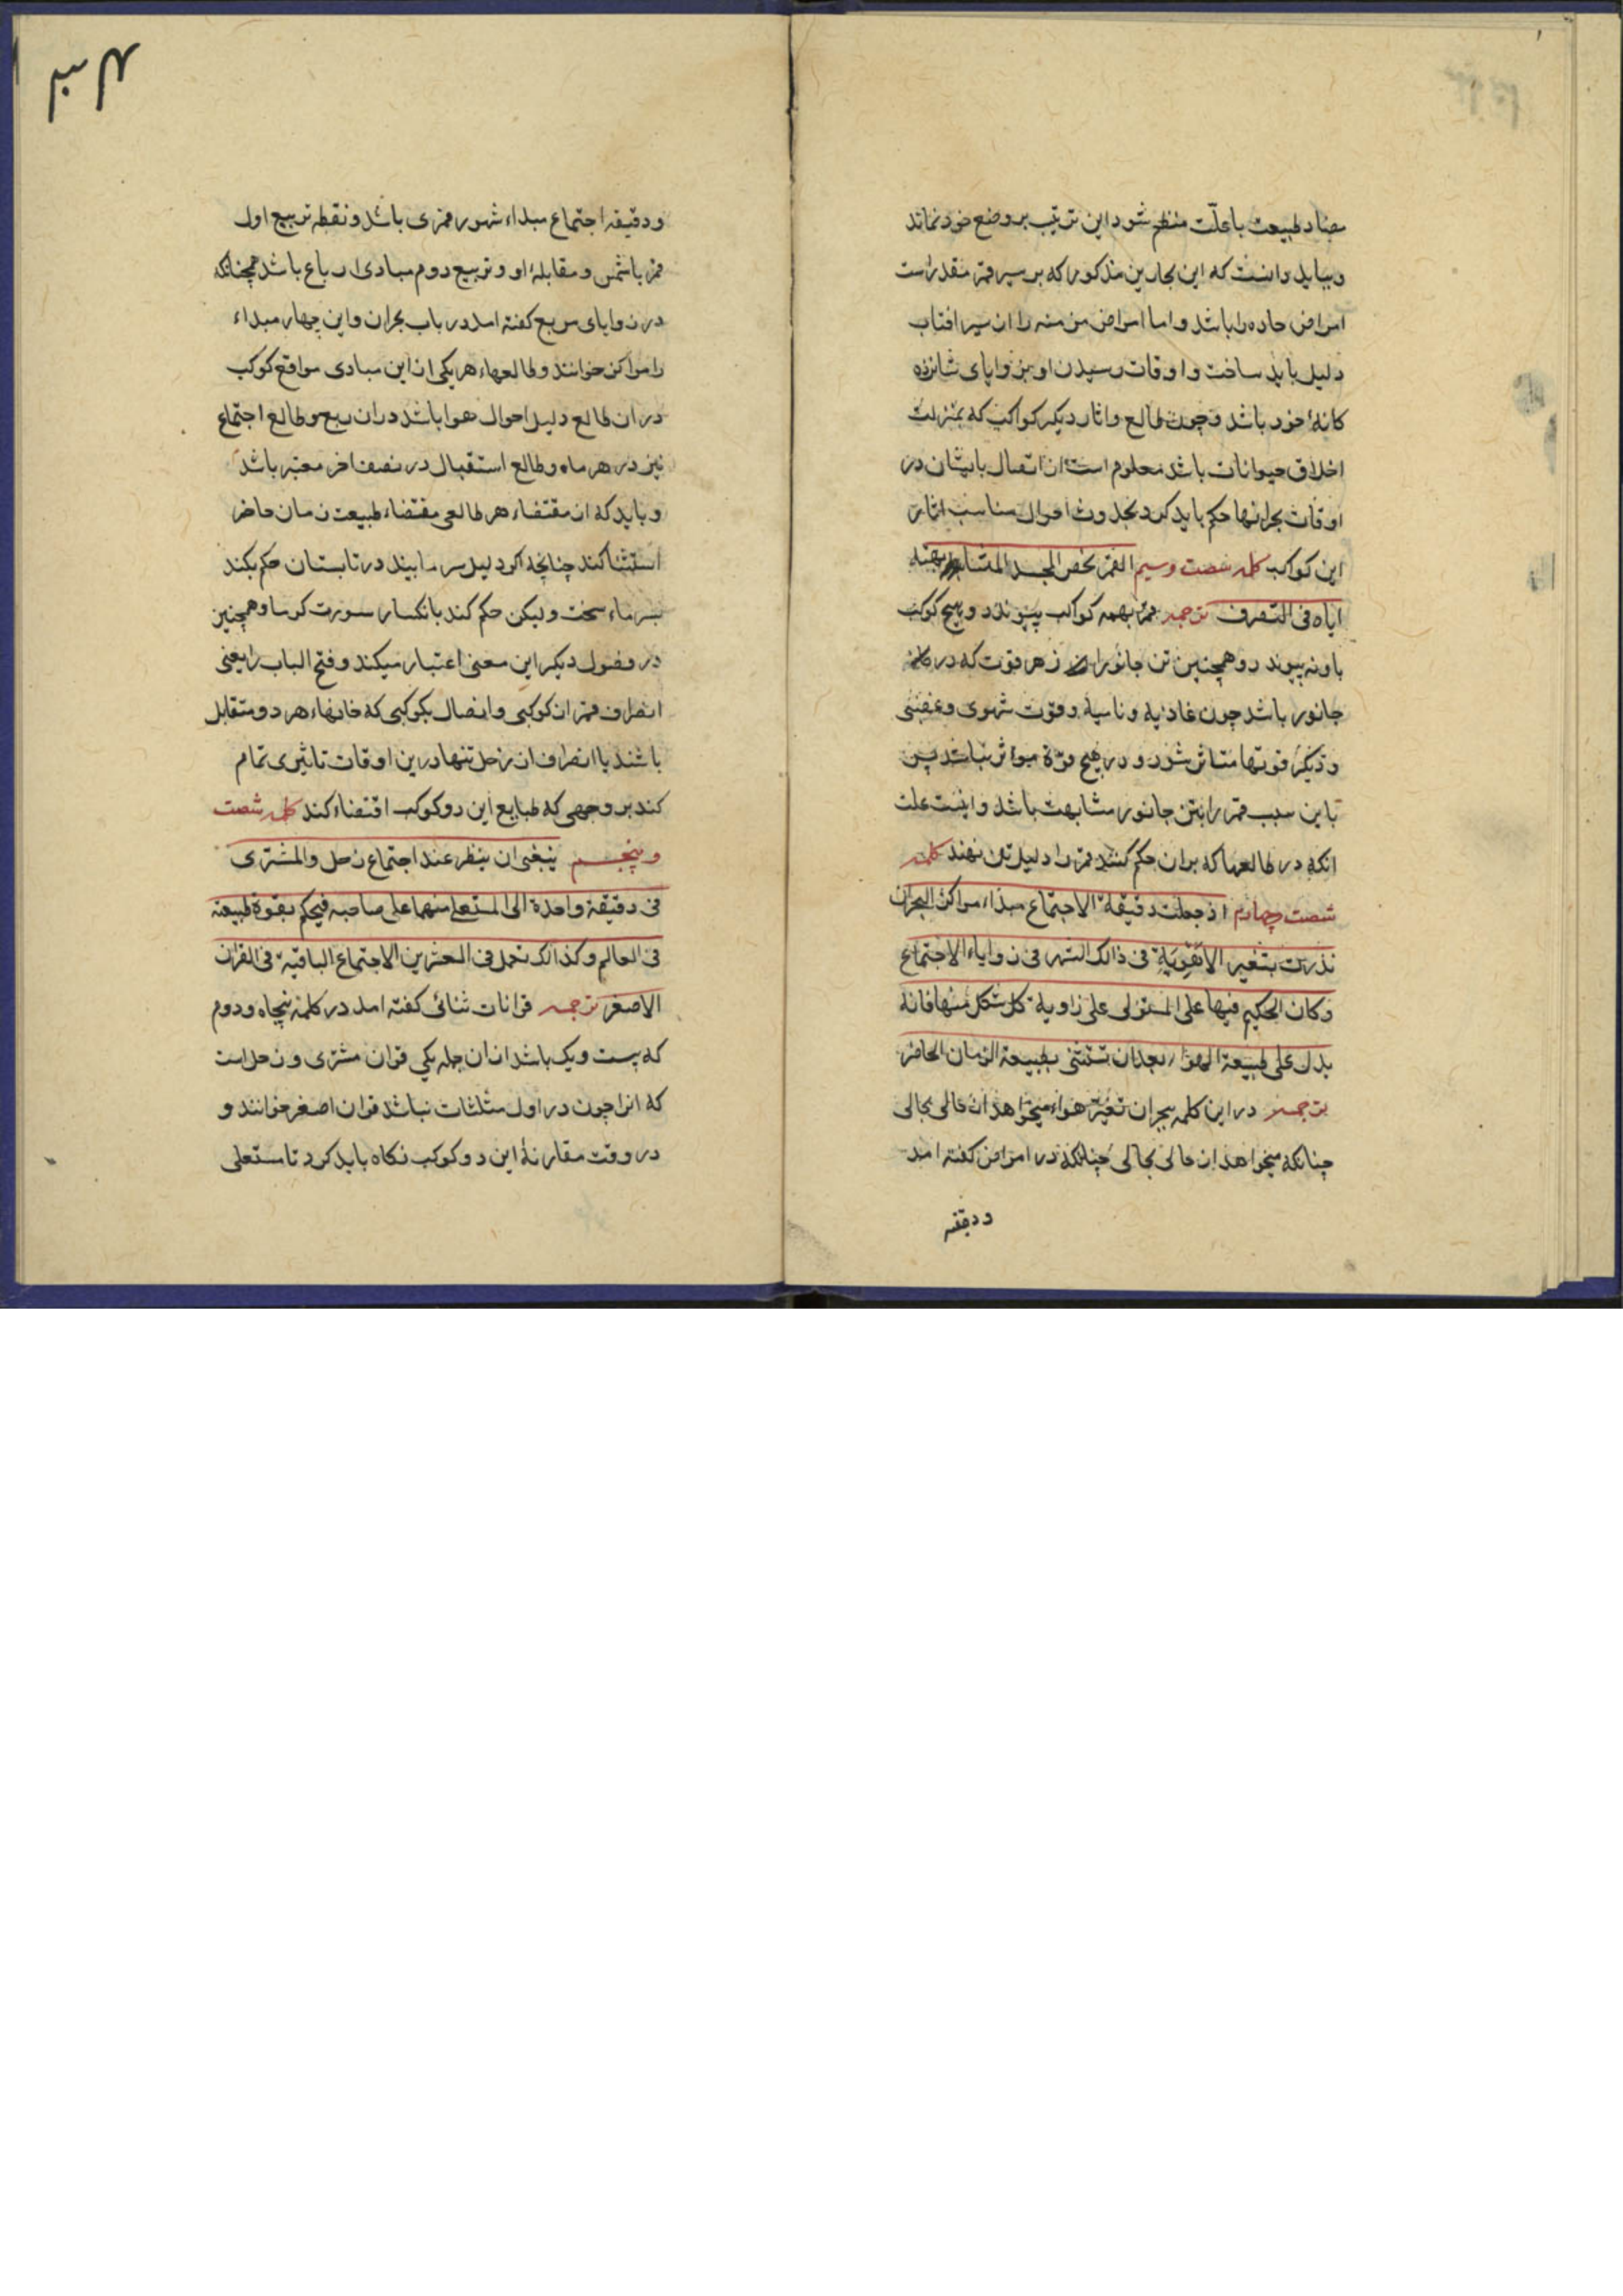 مضاد طبیعت با علّت منظم شود این ترتیب بر وضع خود نماند
و بباید دانست که این بحارین مذکور که بر سیر قمر مقدر است
امراض حاده را باشد و اما امراض مزمنه را از سیر افتاب
دلیل باید ساخت و اوقات رسیدن او بزوایای شانزده
کانهٔ خود باشد و چون طالع و اثار دیکر کواکب که بمنزلت
اخلاق حیوانات باشد معلوم است از اتصال بایشان در
اوقات بحرانها حکم باید کرد بحدوث احوال مناسب اثار
این کواکب کلمه شصت وسیم القمر یخص الجسد المتشابهته
ایاه فی التصرف ترجمه قمر بهمه کواکب پیوندد و هیچ کوکب
باو نه پیوندد و همچنین تن جانور از هر قوت که در
جانور باشد چون غاذیه و نامیه و قوت شهوی و غضبی
و دیکر قوتها متاثر شود و در هیچ قوة موثر نباشد پس
باین سبب قمر را بتن جانور مشابهت باشد و اینست علت
انکه در طالعها که بران حکم کنند قمر را دلیل تن نهند کلمه
شصت چهارم اذ جعلت دقیقة الاجتماع مبداء مراکز البحران
نذرت بتغیر الاهویة فی ذالک الشهر فی زوایاء الاجتماع
وکان الحکیم فیها علی المستولی علی زاویة کل شکل منها فانه
یدل علی طبیعة الهواء بعد ان تستثنی بطبیعة الزمان الحاضر
ترجمه در این کلمه ببحران تغیر هواء میخواهد از حالی بحالی
چنانکه میخواهد از حالی بحالی چنانکه در امراض کفته امد
ودقیقه
ودقیقه اجتماع مبداء شهور قمری باشد و نقطه تربیع اول
قمر با شمس و مقابلهٔ او و تربیع دوم مبادی ارباع باشد همچنانکه
در زوایای مربع کفته امد در باب بحران و این چهار مبداء
را مراکز خوانند و طالعهاء هر یکی از این مبادی مواقع کوکب
در ان طالع دلیل احوال هوا باشد دران ربع و طالع اجتماع
نیز در هر ماه و طالع استقبال در نصف اخر معتبر باشد
و باید که از مقتضاء هر طالعی مقتضاء طبیعت زمان حاضر
استثنا کند چنانچه اکر دلیل سرما بیند در تابستان حکم بکند
بسرماء سخت و لیکن حکم کند بانکسار سورت کرما و همچنین
در فصول دیکر این معنی اعتبار میکند و فتح الباب را یعنی
انصراف قمر از کوکبی و اتصال بکوکبی که خانهاء هر دو متقابل
باشند یا انصراف از زحل تنها درین اوقات تاثیری تمام
کند بر وجهی که طبایع این دو کوکب اقتضاء کند کلمه شصت
وپنجم ینبغی ان ینظر عند اجتماع زحل والمشتری
فی دقیقة واحدة الی المستعلی منهما علی صاحبه فیحکم بقوة طبیعته
فی العالم و کذالک تعمل فی العشرین الاجتماع الباقیة فی القران
الاصغر ترجمه قرانات ثنائی کفته امد در کلمه پنجاه و دوم
که بیست و یک باشد ازان جمله یکی قران مشتری و زحل است
که انرا چون در اول مثلثات نباشد قران اصغر خوانند و
در وقت مقارنهٔ این دو کوکب نکاه باید کرد تا مستعلی